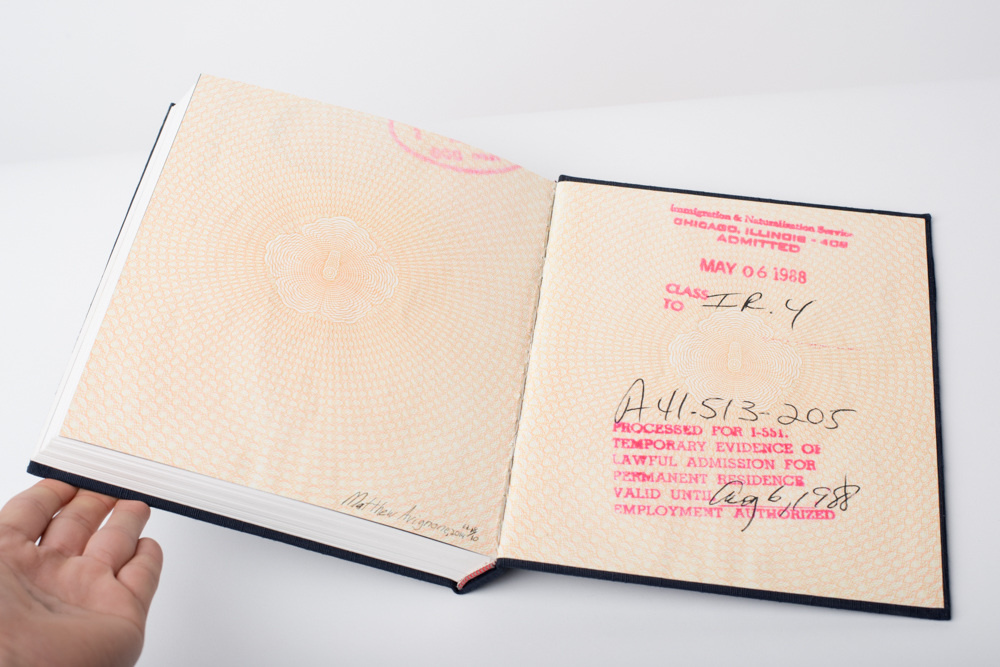 Matthew Avignone
Immigration & Naturalization Service
CHICAGO, ILLINOIS - 409
ADMITTED
MAY 06 1988
CLASS IR.4
TO
A41-513-205
PROCESSED FOR I-551.
TEMPORARY EVIDENCE OF
LAWFUL ADMISSION FOR
PERMANENT RESIDENCE
VALID UNTIL Aug 6, 1988
EMPLOYMENT AUTHORIZED